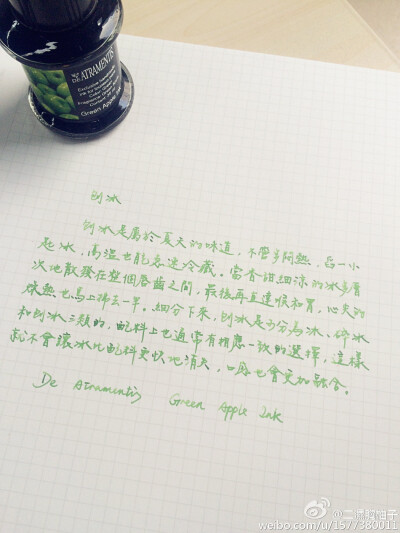 DE ATRAMENTIS
Green Apple Ink
刨冰
刨冰是屬於夏天的味道,不管多悶熱,舀一小
匙冰,高溫也能急速冷藏。當香甜細涼的冰多層
次地散發在整個唇齒之間,最後再直達喉和胃,心的
燥熱也馬上掃去一半。細分下來,刨冰是可分為冰、碎冰
和刨冰三類的,配料上也通常有相應一致的選擇,這樣
就不會讓冰比配料更快地消失,口感也會更加融合。
De Atramentis Green Apple Ink
weibo.com/u/1577380011